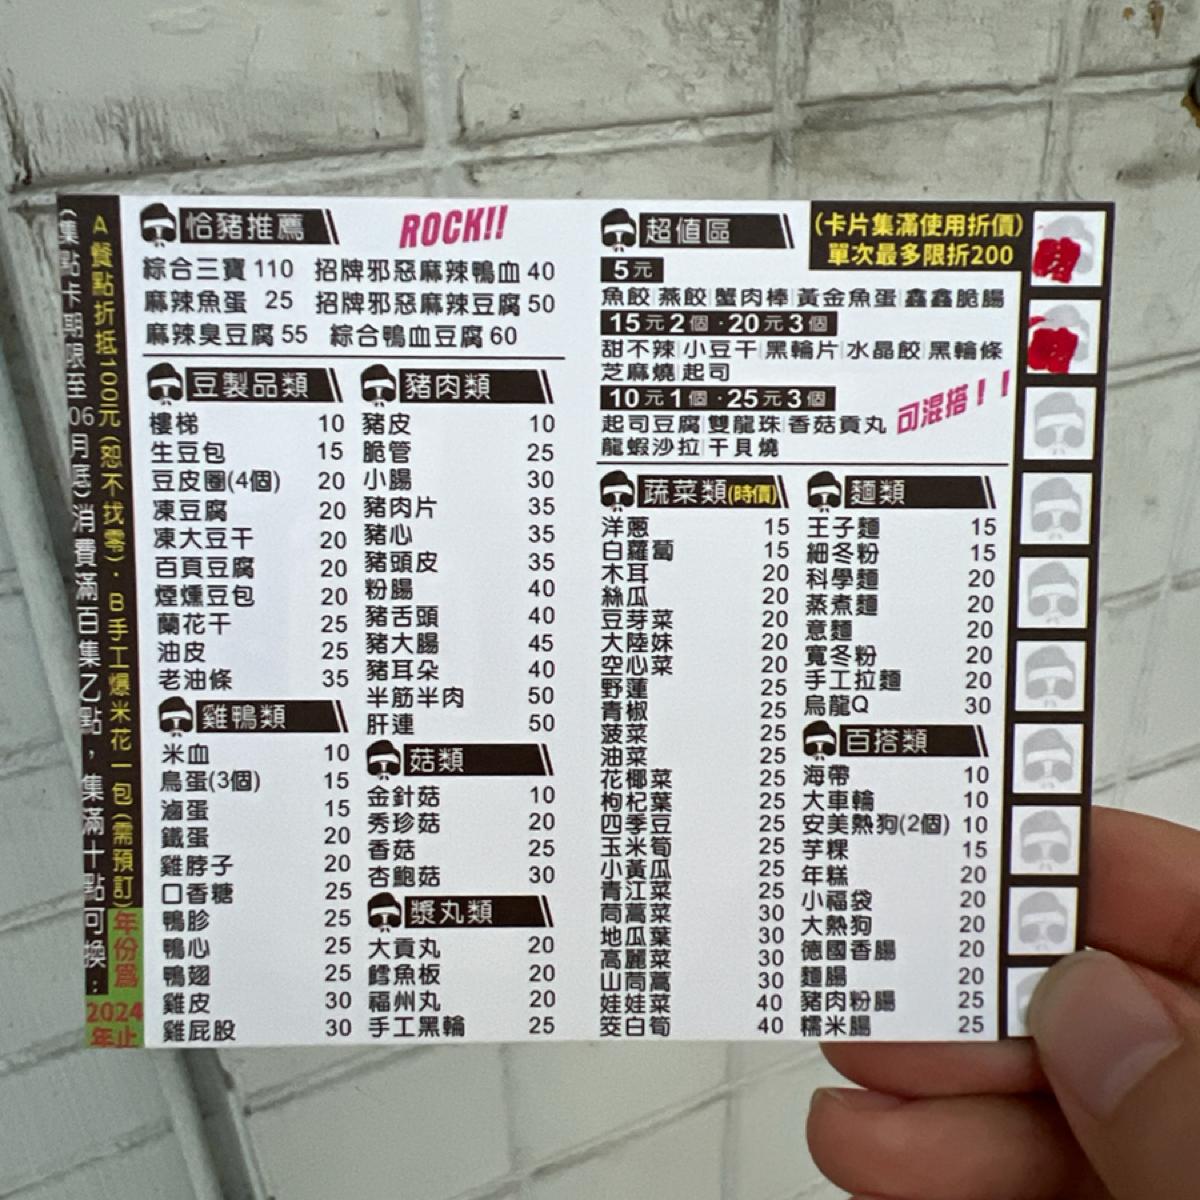 (集點卡期限至 06月底)消費滿百集乙點，集滿十點可換：
A餐點折抵100元(恕不找零)．B手工爆米花一包(需預訂)
年份為
2024
年止
恰豬推薦
ROCK!!
綜合三寶 110 招牌邪惡麻辣鴨血 40
麻辣魚蛋 25 招牌邪惡麻辣豆腐 50
麻辣臭豆腐 55 綜合鴨血豆腐 60
豆製品類
樓梯 10
生豆包 15
豆皮圈(4個) 20
凍豆腐 20
凍大豆干 20
百頁豆腐 20
煙燻豆包 20
蘭花干 25
油皮 25
老油條 35
雞鴨類
米血 10
鳥蛋(3個) 15
滷蛋 15
鐵蛋 20
雞脖子 20
口香糖 25
鴨胗 25
鴨心 25
鴨翅 25
雞皮 30
雞屁股 30
豬肉類
豬皮 10
脆管 25
小腸 30
豬肉片 35
豬心 35
豬頭皮 35
粉腸 40
豬舌頭 40
豬大腸 45
豬耳朵 40
半筋半肉 50
肝連 50
菇類
金針菇 10
秀珍菇 20
香菇 25
杏鮑菇 30
漿丸類
大貢丸 20
鱈魚板 20
福州丸 20
手工黑輪 25
超值區
(卡片集滿使用折價)
單次最多限折200
5元
魚餃|燕餃|蟹肉棒|黃金魚蛋|鑫鑫脆腸
15元2個．20元3個
甜不辣|小豆干|黑輪片|水晶餃|黑輪條
芝麻燒|起司
10元1個．25元3個
可混搭！！
起司豆腐|雙龍珠|香菇貢丸
龍蝦沙拉|干貝燒
蔬菜類(時價)
洋蔥 15
白蘿蔔 15
木耳 20
絲瓜 20
豆芽菜 20
大陸妹 20
空心菜 20
野蓮 25
青椒 25
菠菜 25
油菜 25
花椰菜 25
枸杞葉 25
四季豆 25
玉米筍 25
小黃瓜 25
青江菜 25
茼蒿菜 30
地瓜葉 30
高麗菜 30
山茼蒿 30
娃娃菜 40
筊白筍 40
麵類
王子麵 15
細冬粉 15
科學麵 20
蒸煮麵 20
意麵 20
寬冬粉 20
手工拉麵 20
烏龍Q 30
百搭類
海帶 10
大車輪 10
安美熱狗(2個) 10
芋粿 15
年糕 20
小福袋 20
大熱狗 20
德國香腸 20
麵腸 20
豬肉粉腸 25
糯米腸 25